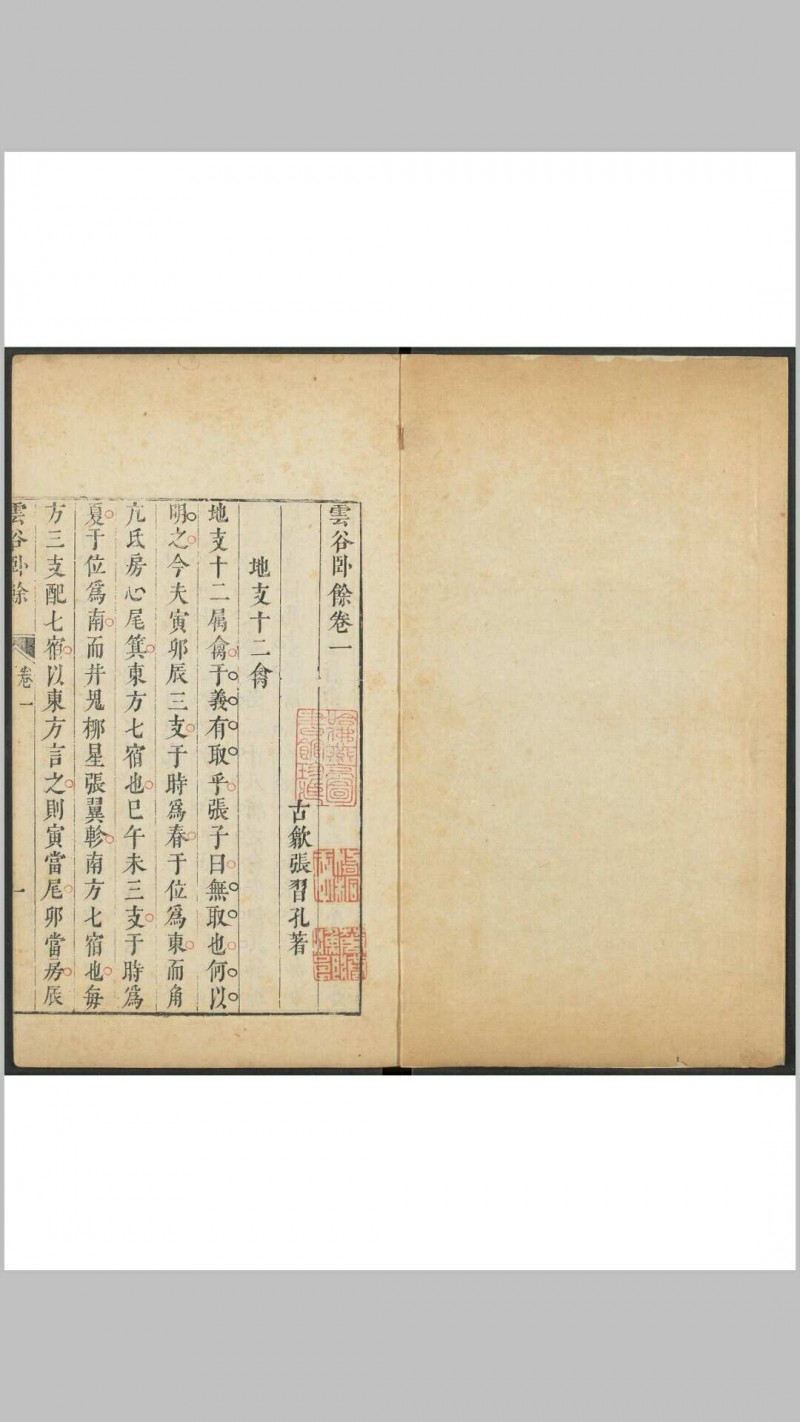 雲谷臥餘卷一
古歙張習孔著
地支十二禽
地支十二屬禽于義有取乎張子曰無取也何以
明之今夫寅卯辰三支于時爲春于位爲東而角
亢氐房心尾箕東方七宿也巳午未三支于時爲
夏于位爲南而井鬼桺星張翼軫南方七宿也每
方三支配七宿以東方言之則寅當尾卯當房辰
雲谷臥餘 卷一 一